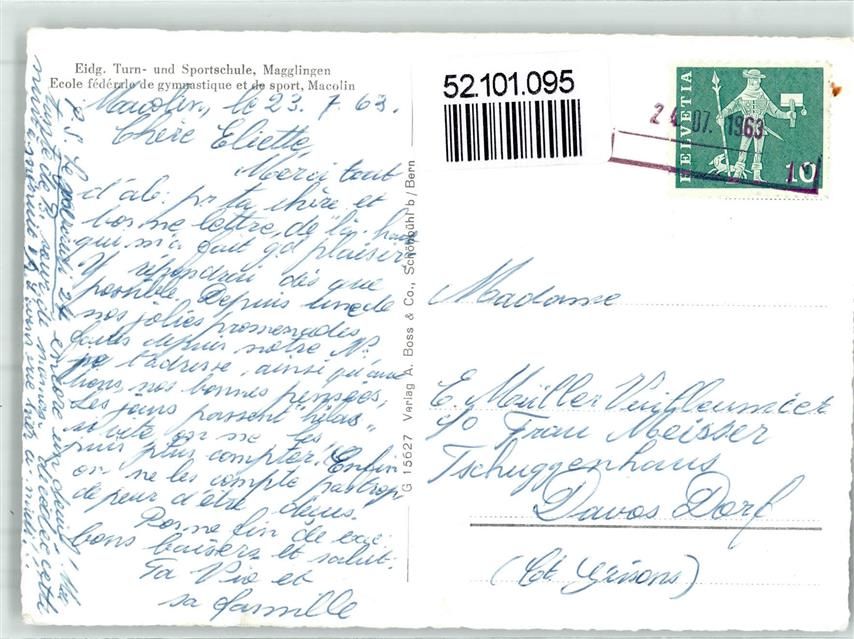 Eidg. Turn- und Sportschule, Magglingen
Ecole fédérale de gymnastique et de sport, Macolin
Macolin, le 23. 7. 63.
Chère Eliette,
Merci tout
d'ab: pr ta chère et
bonne lettre, de "là-haut"
qui m'a fait gd plaisir
Y répondrai dès que
possible. Depuis une de
nos jolies promenades
faites depuis notre No
je t'adresse, ainsi qu'aux
tiens, nos bonnes pensées.
Les jours passent "hélas"
si vite, on ne les
puis plus compter! Enfin
on ne les compte pas trop
de peur d'être déçus.
Bonne fin de
bons baisers et salut.
Ta Vio et
sa famille
P.S. Ippolivari 24 encore un peu!
de la
52.101.095
HELVETIA
10
24. 07. 1963
G 15627 Verlag A. Boss & Co., Schönbühl b/Bern
Madame
E. Müller Vuilleumier
c/o Frau Meisser
Tschuggenhaus
Davos Dorf
(Ct. Grisons)